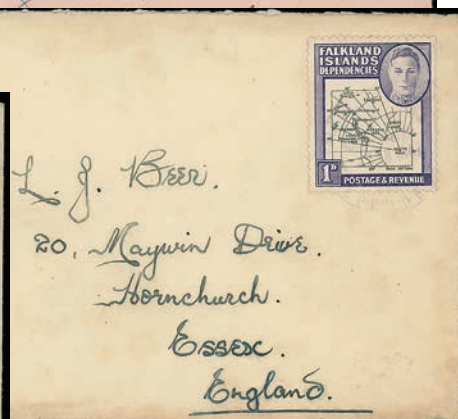 FALKLAND
ISLANDS
DEPENDENCIES
1D
POSTAGE & REVENUE
L. J. Beer.
20, Maywin Drive.
Hornchurch.
Essex.
England.